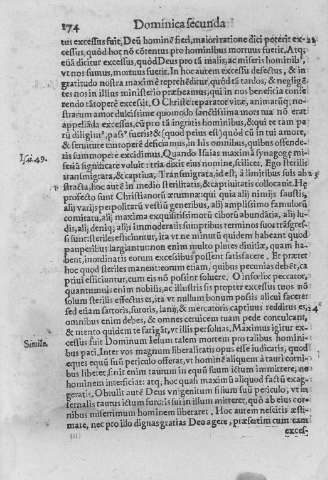 174 Dominica secunda
tus excessus fuit, Deũ hominẽ fieri, maiori ratione dici poterit ex-
cessus, quód hoc nõ cõtentus pro hominibus mortuus fuerit. Atq;
euã dicitur excessus, quód Deus pro tã malis, ac miseris hominibꝰ,
vt nos sumus, mortuus fuerit. In hoc autem excessu defectus, & in
gratitudo nostra maximè reprehẽditur, quód ã tardos, & neglig
tes nos in illius ministerio præbeamus, qui in nos beneficia
rendo tãtoperè excessit. O Christe reparator vitæ, animarũq; no-
strarum amor dulcissime quomodo
appellãda excessus, cũ pro tã ingratis hominibus, & qui te tam pa-
rũ diligũt, passꝰ fueris? & (quod peius est) quód cũ in tui amore,
& seruitute tantoperè deficiamus, in his omnibus, quibus offende-
ris summopere excedimus. Quando Isaias maximã synagogæ mi-
Isai. 49. seriã significare voluit: tria dicit eius nomine, scilicet, Ego sterilis
transmigrata, & captiua. Transmigrata, id est, à limitibus suis ab
stracta, hoc autẽ in medio sterilitatis, & captiuitatis collocauit. Hę
profecto sunt Christianorũ ærumnæ: qui quia alij nimijs faustis,
alij varijs perpolitarũ vestiũ generibus, alij amplissimo famulorũ
comitatu, alij maxima exquisitissimorũ ciborũ abundãtia, alij lu-
dis, alij deniq; alijs immoderatis sumptibus terminos suos trãsgres-
si sunt: steriles efficiuntur, ita vt ne minutũ quidem habeant quod
pauperibus largiantur: non enim multo plures diuitiæ, quam ha-
bent, inordinatis eorum excessibus possent satisfacere. Et præter
hoc quod steriles manent: eorum etiam, quibus pecunias debẽt, ca
ptiui efficiuntur, cum eis nõ possint soluere. O infœlix peccator,
quantumuis enim nobilis, ac illustris sis propter excessus tuos nõ
solum sterilis effectus es, ita vt nullum bonum possis alicui facere:
sed etiam sartoris, sutoris, lanij, & mercatoris captiuus redditus es,
omnibus enim debes, & omnes ceruicem tuam pede conculcant,
& merito quidem te fatigãt, vt illis persoluas. Maximus igitur ex-
Simile. cessus fuit Dominum Iesum talem mortem pro talibus homini-
bus pati. Inter vos magnum liberalitatis opus esse iudicatis, quod
eques equũ suũ periculo offerat, vt hominẽ aliquem à tauri corni-
bus liberet, sinit enim taurum in equũ suum ictum immittere, ne
hominem interficiat: atq; hoc quah maximũ aliquod factũ exag-
geratis. Obtulit autẽ Deus vnigenitum filium suũ periculo, vt in
fernalis taurus ictum furoris sui in illum mitteret, quo ab eius cor-
nibus miserrimum hominem liberaret. Hoc autem nescitis æsti-
mate, nec pro illo dignas gratias Deo agere, præsertim cum tam
exces-